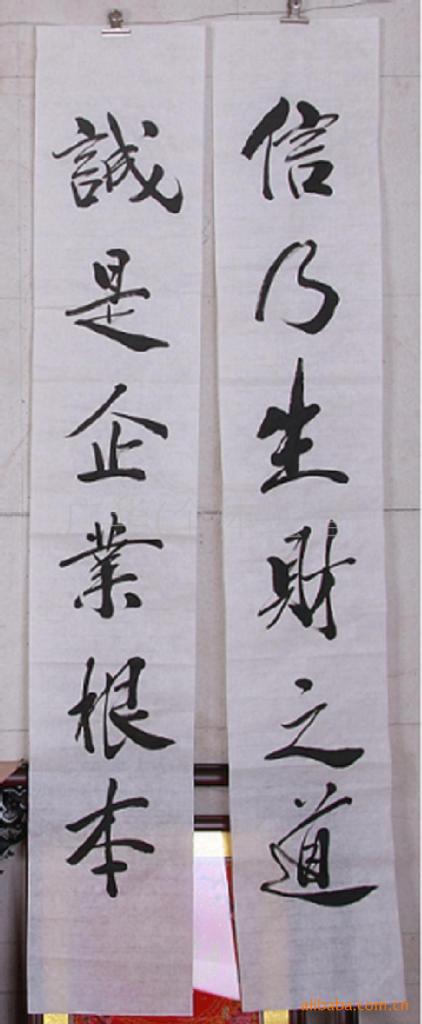 信乃生財之道
誠是企業根本
alibaba.com.cn